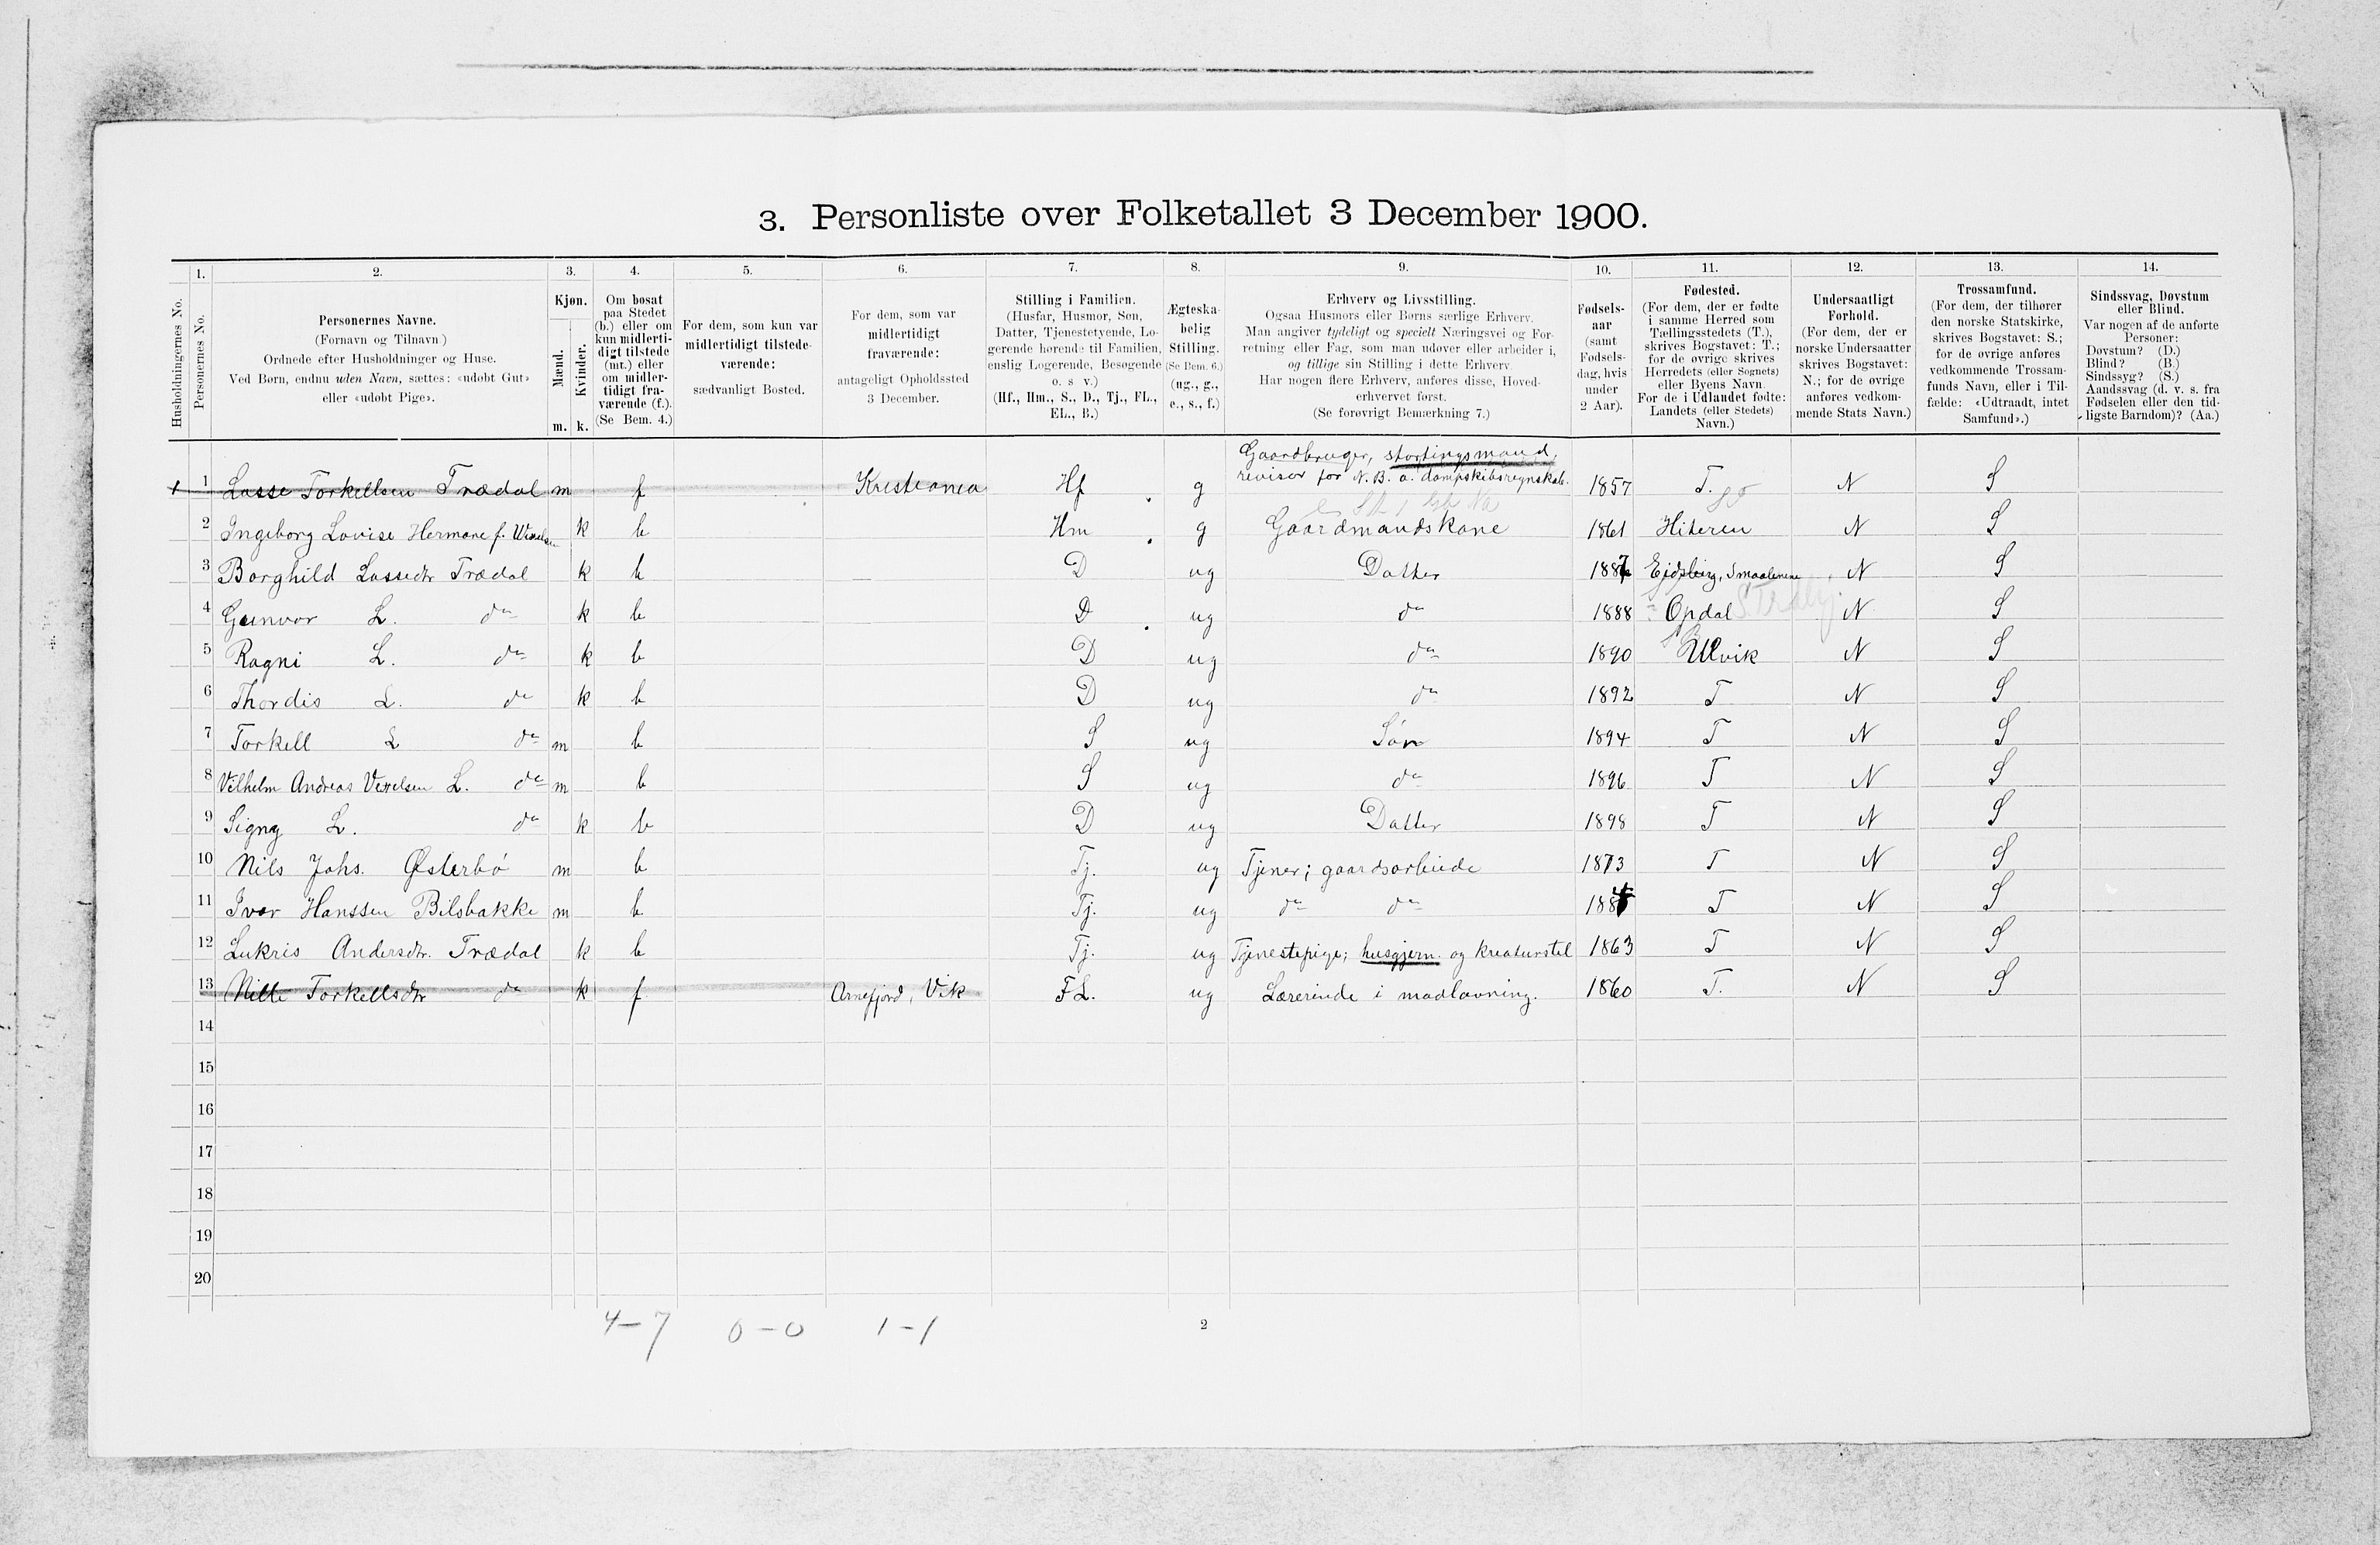 3. Personliste over Folketallet 3 December 1900.
1. 2. 3. 4. 5. 6. 7. 8. 9. 10. 11. 12. 13. 14.
Husholdningernes No.
Personernes No.
Personernes Navne.
(Fornavn og Tilnavn)
Ordnede efter Husholdninger og Huse.
Ved Børn, endnu uden Navn, sættes: «udøbt Gut»
eller «udøbt Pige».
Kjøn.
Mænd.
Kvinder.
m. k.
Om bosat
paa Stedet
(b.) eller om
kun midlerti-
digt tilstede
(mt.) eller
om midler-
tidigt fra-
værende (f.).
(Se Bem. 4.)
For dem, som kun var
midlertidigt tilstede-
værende:
sædvanligt Bosted.
For dem, som var
midlertidigt
fraværende:
antageligt Opholdssted
3 December.
Stilling i Familien.
(Husfar, Husmor, Søn,
Datter, Tjenestetyende, Lo-
gerende hørende til Familien,
enslig Logerende, Besøgende
o. s. v.)
(Hf., Hm., S., D., Tj., FL.,
EL., B.)
Ægteska-
belig
Stilling.
(Se Bem. 6.)
(ug., g.,
e., s., f.)
Erhverv og Livsstilling.
Ogsaa Husmors eller Børns særlige Erhverv.
Man angiver tydeligt og specielt Næringsvei og For-
retning eller Fag, som man udøver eller arbeider i,
og tillige sin Stilling i dette Erhverv.
Har nogen flere Erhverv, anføres disse, Hoved-
erhvervet først.
(Se forøvrigt Bemærkning 7.)
Fødsels-
aar
(samt
Fødsels-
dag, hvis
under
2 Aar).
Fødested.
(For dem, der er fødte
i samme Herred som
Tællingsstedets (T.),
skrives Bogstavet: T.;
for de øvrige skrives
Herredets (eller Sognets)
eller Byens Navn.
For de i Udlandet fødte:
Landets (eller Stedets)
Navn.)
Undersaatligt
Forhold.
(For dem, der er
norske Undersaatter
skrives Bogstavet:
N.; for de øvrige
anføres vedkom-
mende Stats Navn.)
Trossamfund.
(For dem, der tilhører
den norske Statskirke,
skrives Bogstavet: S.;
for de øvrige anføres
vedkommende Trossam-
funds Navn, eller i Til-
fælde: «Udtraadt, intet
Samfund».)
Sindssvag, Døvstum
eller Blind.
Var nogen af de anførte
Personer:
Døvstum? (D.)
Blind? (B.)
Sindssyg? (S.)
Aandssvag (d. v. s. fra
Fødselen eller den tid-
ligste Barndom)? (Aa.)
Gaardbruger, stortingsmand,
1 1 Lasse Torkellsen Trædal m f Kristiania Hf g revisor for N. B. a. dampskibsregnskab. 1857 T. N S
2 Ingeborg Lovise Hermane f. k b Hm g Gaardmandskone 1861 Hiteren N S
3 Borghild Lassedtr Trædal k b D ug Datter 1887 Eidsberg, Smaalenene N S
4 Gunvor L. do k b D ug do 1888 Opdal N S
5 Ragni L. do k b D ug do 1890 Ulvik N S
6 Thordis L. do k b D ug do 1892 T N S
7 Torkell L do m b S ug Søn 1894 T N S
8 Vilhelm Andreas Vexelsen L. do m b S ug do 1896 T N S
9 Signy L. do k b D ug Datter 1898 T N S
10 Nils Johs. Østerbø m b Tj. ug Tjener; gaardsarbeide 1873 T N S
11 Ivar Hanssen Bilsbakke m b Tj. ug do do 1884 T N S
12 Lukris Andersdtr. Trædal k b Tj. ug Tjenestepige; husgjern. og kreaturstel 1863 T N S
13 Nille Torkellsdtr do k f Arnefjord, Vik FL. ug Lærerinde i madlavning. 1860 T. N S
14
15
16
17
18
19
20
4-7 0-0 1-1
2